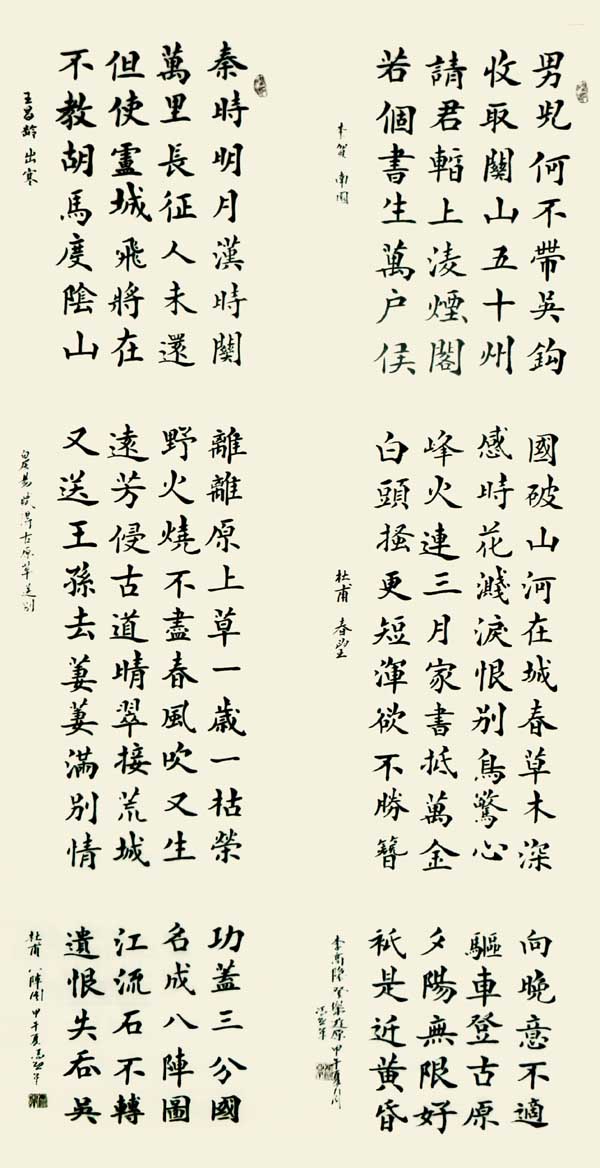 男兒何不帶吳鈎
收取關山五十州
請君暫上淩煙閣
若個書生萬户侯
李賀 南園
國破山河在城春草木深
感時花濺淚恨别鳥驚心
峰火連三月家書抵萬金
白頭搔更短渾欲不勝簪
杜甫 春望
向晚意不適
驅車登古原
夕陽無限好
衹是近黄昏
李商隱 登樂遊原 甲午夏
秦時明月漢時關
萬里長征人未還
但使靈城飛將在
不教胡馬度陰山
王昌齡 出寒
離離原上草一歲一枯榮
野火燒不盡春風吹又生
遠芳侵古道晴翠接荒城
又送王孫去萋萋滿别情
白居易 賦得古原草送别
功蓋三分國
名成八陣圖
江流石不轉
遺恨失吞吳
杜甫 八陣圖 甲午夏